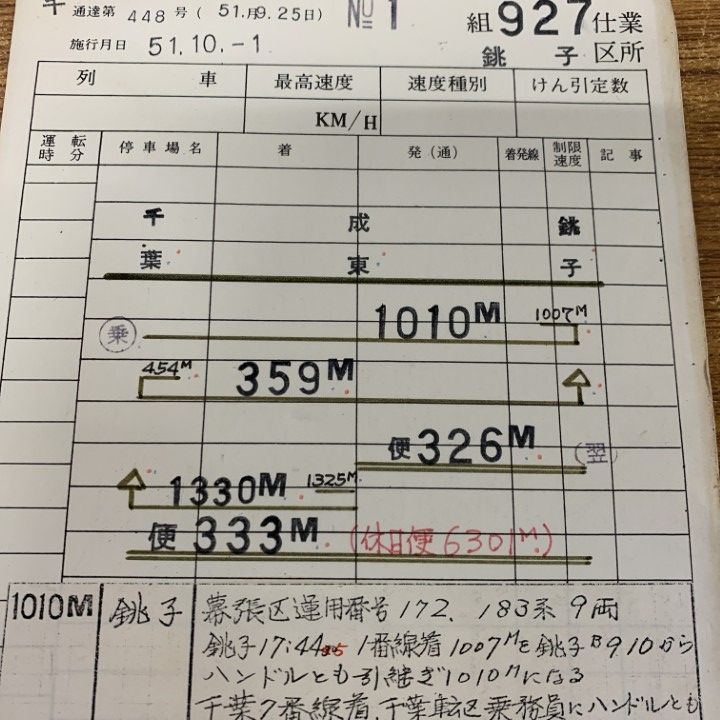 通達第 448 号 ( 51.月9.25日) № 1 組927仕業
施行月日 51.10.-1 銚子区所
列車 最高速度 速度種別 けん引定数
KM/H
運転時分 停車場名 着 発(通) 着発線 制限速度 記事
千葉 成東 銚子
乗 1010M 1007M
454M 359M
便326M (翌)
1330M 1325M
便333M (休日便6301M)
1010M 銚子 幕張区運用番号172. 183系9両
銚子17:44 1番線着1007Mを銚子B910から
ハンドルとも引継ぎ1010Mになる
千葉7番線着、千葉転区乗務員にハンドルとも